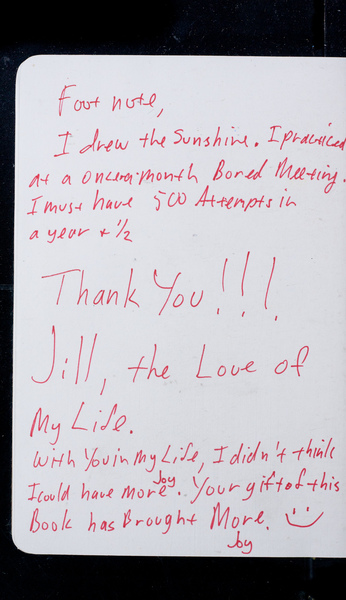 Foot note,
I drew the Sunshine. I practiced
at a once a month Bored Meeting.
I must have 500 Attempts in
a year + 1/2
Thank You!!!
Jill, the Love of
My Life.
With You in My Life, I didn't think
I could have more Joy. Your gift of this
Book has Brought More.
Joy